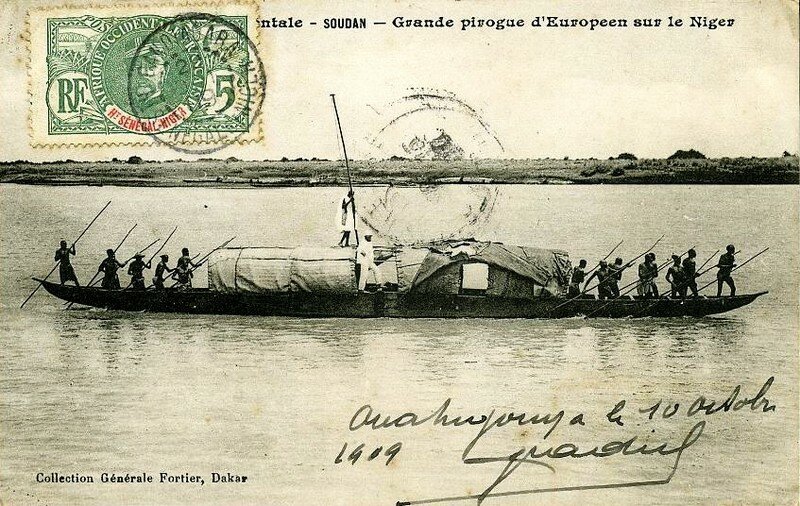 ntale - SOUDAN - Grande pirogue d'Europeen sur le Niger
POSTES
AFRIQUE OCCIDENTALE FRANÇAISE
RF 5
Hᵗ SÉNÉGAL-NIGER
Ouahigouya le 10 Octobre
1909
Collection Générale Fortier, Dakar